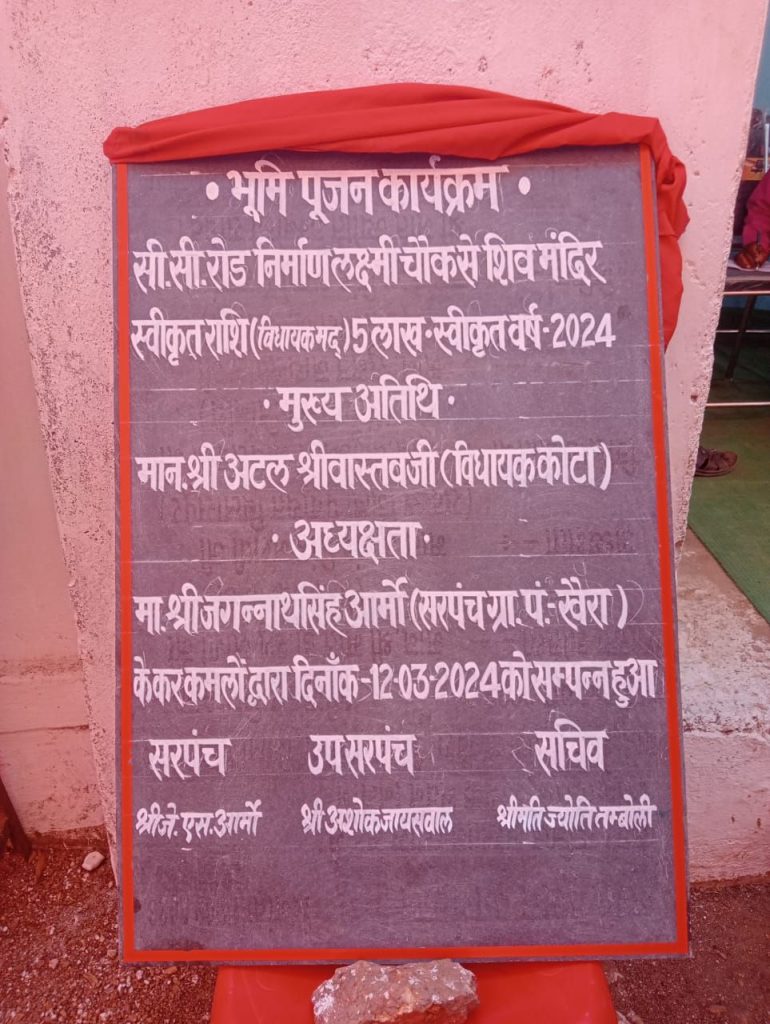 • भूमि पूजन कार्यक्रम •
सी.सी.रोड निर्माण लक्ष्मी चौकसे शिव मंदिर
स्वीकृत राशि (विधायक मद्) 5 लाख • स्वीकृत वर्ष - 2024
• मुख्य अतिथि •
मान. श्री अटल श्रीवास्तव जी (विधायक कोटा)
• अध्यक्षता •
मा. श्री जगन्नाथ सिंह आर्मो (सरपंच ग्रा. पं.- खैरा)
के कर कमलों द्वारा दिनाँक - 12-03-2024 को सम्पन्न हुआ
सरपंच उप सरपंच सचिव
श्री जे. एस. आर्मो श्री अशोक जायसवाल श्रीमति ज्योति तम्बोली